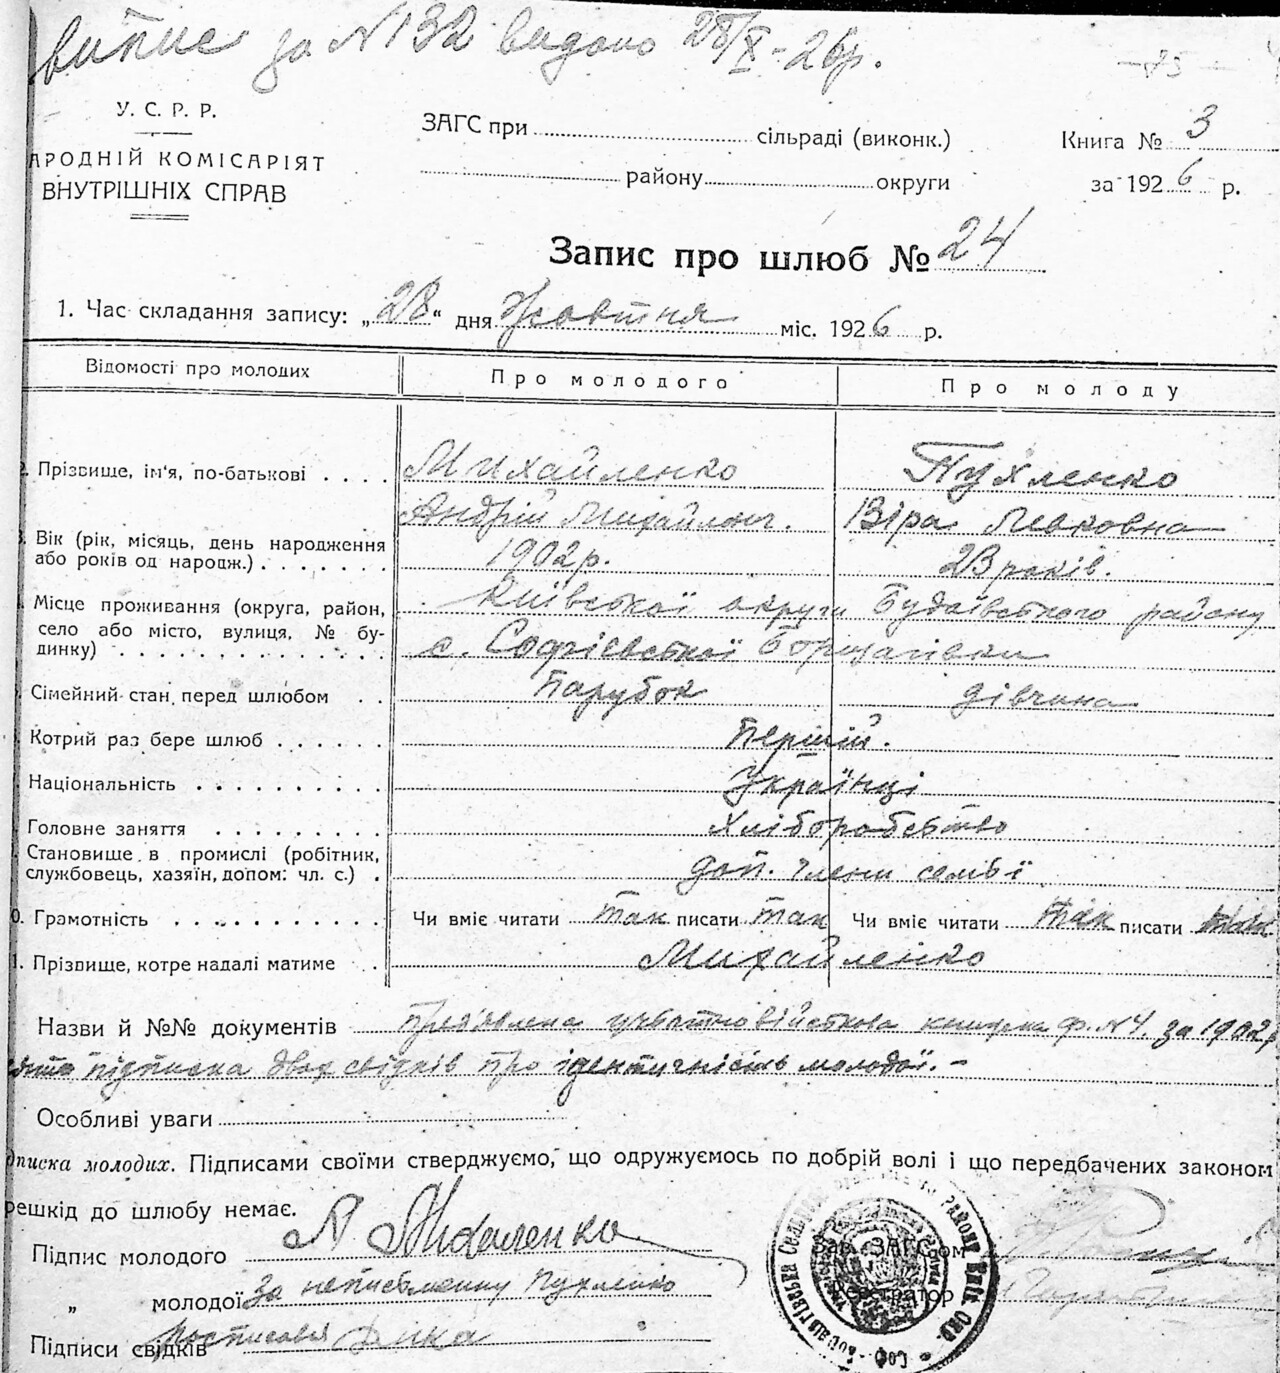 випис за N 132 видано 28/X - 26р.
У. С. Р. Р.
АРОДНІЙ КОМІСАРІЯТ
ВНУТРІШНІХ СПРАВ
ЗАГС при сільраді (виконк.)
району округи
Книга № 3
за 1926 р.
Запис про шлюб № 24
1. Час складання запису: „28“ дня Жовтня міс. 1926 р.
Відомості про молодих Про молодого Про молоду
Прізвище, ім'я, по-батькові Михайленко Пухленко
Андрій Михайлович. Віра Левковна
Вік (рік, місяць, день народження або років од нарoдж.) 1902р. 23 років.
Місце проживання (округа, район, село або місто, вулиця, № будинку) Київської округи Будаївського району
с. Софієвської Борщагівки
Сімейний стан перед шлюбом Парубок дівчина
Котрий раз бере шлюб Перший.
Національність Українці
Головне заняття Хліборобство
Становище в промислі (робітник, службовець, хазяїн, допом: чл. с.) доп. члени семві
0. Грамотність Чи вміє читати так писати так Чи вміє читати так писати так
1. Прізвище, котре надалі матиме Михайленко
Назви й №№ документів предявлена учботновійськова книжка ф. N 4. за 1902р
підписка двох свідків про ідентичність молодої. –
Особливі уваги
дписка молодих. Підписами своїми стверджуємо, що одружуємось по добрій волі і що передбачених законом
решкід до шлюбу немає.
Підпис молодого А Михаленко
„ молодої За неписьменну Пухленко
Підписи свідків росписався Дика
Зав. ЗАГС'ом
Реєстратор